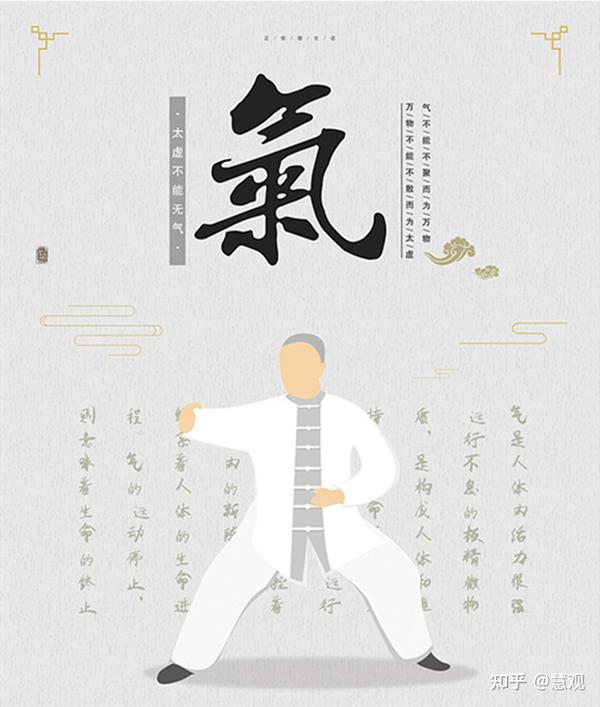 氣
·太虚不能无气·
气/不/能/不/聚/而/为/万/物
万/物/不/能/不/散/而/为/太/虚
气是人体内活力很强
运行不息的极精微物
质，是构成人体和维
持 命
运行
控着
内的新陈
着人体的生命进
程。气的运动停止，
则意味着生命的终止
知乎 @慧观